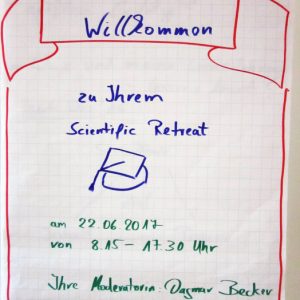 Willkommen
zu Ihrem
Scientific Retreat
am 22.06.2017
von 8.15 - 17.30 Uhr
Ihre Moderatorin: Dagmar Becker